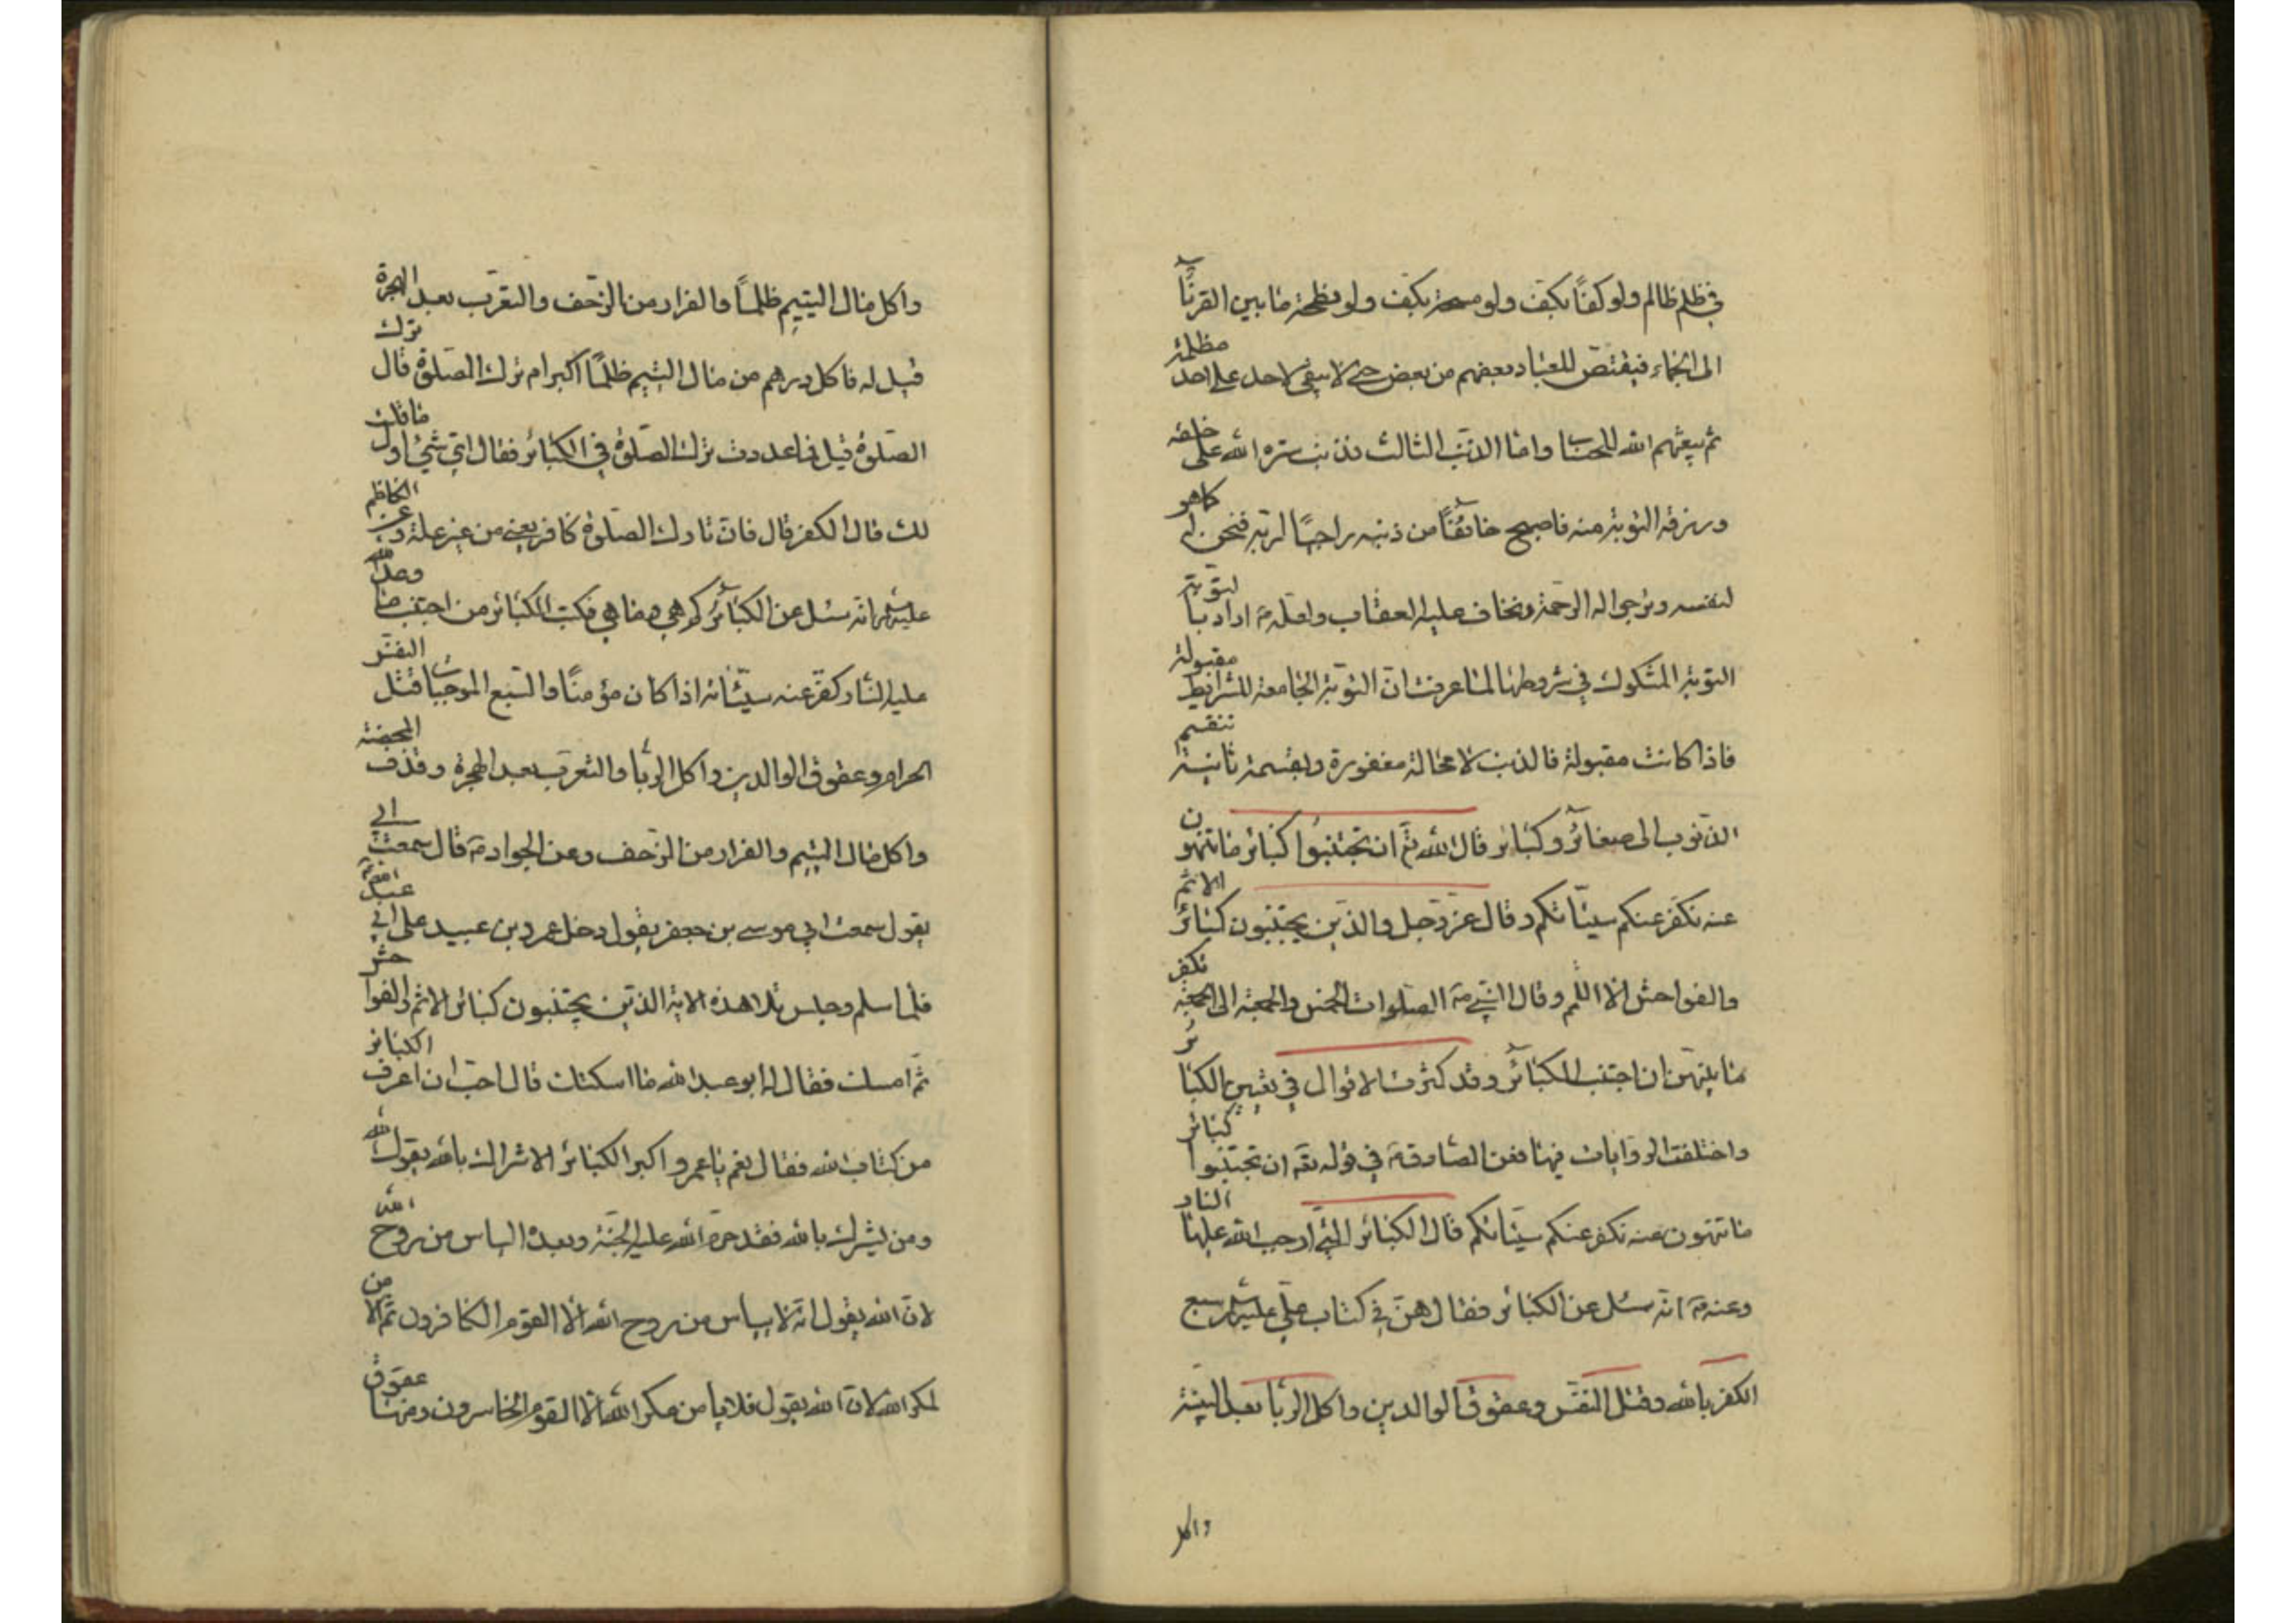 في ظلم ظالم ولو كفّاً بكفّ ولو مسحة بكفّ ولو نطحة ما بين القرنآ
الى الجمّاء فيقتصّ للعباد بعضهم من بعض حتى لا يبقى لاحد على احد مظلمة
ثم يبعثهم الله للحساب واما الذنب الثالث فذنب ستره الله على خلقه
ورزقه التوبة منه فاصبح خائفاً من ذنبه راجياً لربّه فنحن له كما هو
لنفسه ونرجو له الرحمة ونخاف عليه العقاب ولعلّه ع اراد بالتوبة
التوبة المشكوك في شروطها لما عرفت انّ التوبة الجامعة للشرايط مقبولة
فاذا كانت مقبولة فالذنب لا محالة مغفورة وبقسمة ثانية تنقسم
الذنوب الى صغائر وكبائر قال الله تع ان تجتنبوا كبائر ما تنهون
عنه نكفر عنكم سيّئاتكم وقال عزّ وجل والذين يجتنبون كبائر الاثم
والفواحش الا اللمم وقال النبي ص الصلوات الخمس والجمعة الى الجمعة تكفر
ما بينهنّ ان اجتنب الكبائر وقد كثرت الاقوال في تعيين الكبائر
واختلفت الروايات فيها فعن الصادق ع في قوله تع ان تجتنبوا كبائر
ما تنهون عنه نكفر عنكم سيّئاتكم قال الكبائر التي اوجب الله عليها النار
وعنه ع انه سئل عن الكبائر فقال هنّ في كتاب عليّ عليه السلام سبع
الكفر بالله وقتل النفس وعقوق الوالدين واكل الربا بعد البيّنة
واكل
واكل مال اليتيم ظلماً والفرار من الزحف والتعرّب بعد الهجرة
قيل له فاكل درهم من مال اليتيم ظلماً اكبر ام ترك الصلوة قال ترك
الصلوة قيل فما عددت ترك الصلوة في الكبائر فقال ايّ شيء اول ما قلت
لك قال الكفر قال فانّ تارك الصلوة كافر يعني من غير علة وعن الكاظم
عليه السلام انه سئل عن الكبائر كم هي وما هي فكتب الكبائر من اجتنب ما وعد الله
عليه النار كفّر عنه سيّئاته اذا كان مؤمناً والسبع الموجبات قتل النفس
الحرام وعقوق الوالدين واكل الربا والتعرّب بعد الهجرة وقذف المحصنة
واكل مال اليتيم والفرار من الزحف وعن الجواد ع قال سمعت ابي
يقول سمعت ابي موسى بن جعفر يقول دخل عمرو بن عبيد على ابي عبد الله
فلما سلم وجلس تلا هذه الاية الذين يجتنبون كبائر الاثم والفواحش
ثم امسك فقال له ابو عبد الله ما اسكتك قال احبّ ان اعرف الكبائر
من كتاب الله فقال نعم يا عمرو اكبر الكبائر الاشراك بالله يقول الله
ومن يشرك بالله فقد حرّم الله عليه الجنّة وبعده الياس من روح الله
لانّ الله يقول انه لا ييأس من روح الله الا القوم الكافرون ثم الامن
لمكر الله لانّ الله يقول فلا يأمن مكر الله الا القوم الخاسرون ومنها عقوق